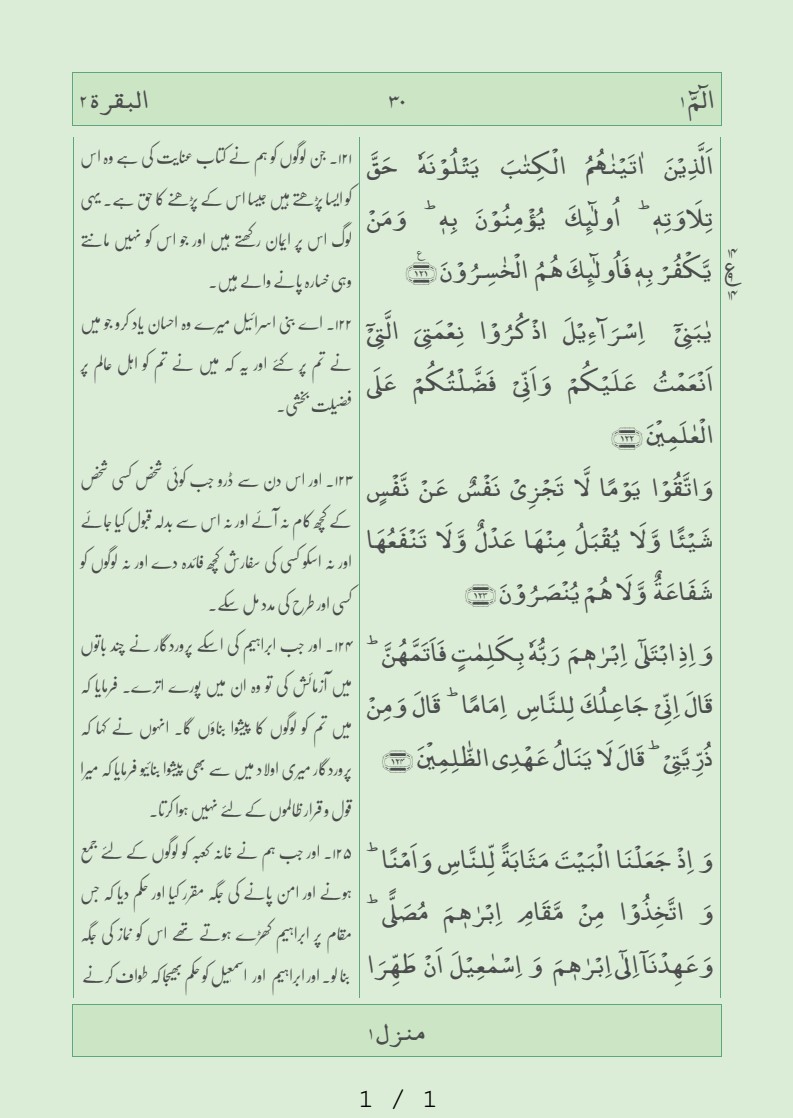 الٓمّٓ ۱
۳۰
البقرة ۲
اَلَّذِيۡنَ اٰتَيۡنٰهُمُ الۡكِتٰبَ يَتۡلُوۡنَهٗ حَقَّ
تِلَاوَتِهٖؕ اُولٰٓٮِٕكَ يُؤۡمِنُوۡنَ بِهٖؕ وَمَنۡ
يَّكۡفُرۡ بِهٖ فَاُولٰٓٮِٕكَ هُمُ الۡخٰسِرُوۡنَ ﴿۱۲۱﴾
۱۴
ع
۱۴
يٰبَنِىۡٓ اِسۡرَآءِيۡلَ اذۡكُرُوۡا نِعۡمَتِىَ الَّتِىۡٓ
اَنۡعَمۡتُ عَلَيۡكُمۡ وَاَنِّىۡ فَضَّلۡتُكُمۡ عَلَى
الۡعٰلَمِيۡنَ ﴿۱۲۲﴾
وَاتَّقُوۡا يَوۡمًا لَّا تَجۡزِىۡ نَفۡسٌ عَنۡ نَّفۡسٍ
شَيۡئًا وَّلَا يُقۡبَلُ مِنۡهَا عَدۡلٌ وَّلَا تَنۡفَعُهَا
شَفَاعَةٌ وَّلَا هُمۡ يُنۡصَرُوۡنَ ﴿۱۲۳﴾
وَ اِذِ ابۡتَلٰٓى اِبۡرٰهٖمَ رَبُّهٗ بِكَلِمٰتٍ فَاَتَمَّهُنَّؕ
قَالَ اِنِّىۡ جَاعِلُكَ لِلنَّاسِ اِمَامًاؕ قَالَ وَمِنۡ
ذُرِّيَّتِىۡؕ قَالَ لَا يَنَالُ عَهۡدِى الظّٰلِمِيۡنَ ﴿۱۲۴﴾
وَ اِذۡ جَعَلۡنَا الۡبَيۡتَ مَثَابَةً لِّلنَّاسِ وَاَمۡنًاؕ
وَ اتَّخِذُوۡا مِنۡ مَّقَامِ اِبۡرٰهٖمَ مُصَلًّىؕ
وَعَهِدۡنَآ اِلٰٓى اِبۡرٰهٖمَ وَ اِسۡمٰعِيۡلَ اَنۡ طَهِّرَا
۱۲۱۔ جن لوگوں کو ہم نے کتاب عنایت کی ہے وہ اس
کو ایسا پڑھتے ہیں جیسا اس کے پڑھنے کا حق ہے۔ یہی
لوگ اس پر ایمان رکھتے ہیں اور جو اس کو نہیں مانتے
وہی خسارہ پانے والے ہیں۔
۱۲۲۔ اے بنی اسرائیل میرے وہ احسان یاد کرو جو میں
نے تم پر کئے اور یہ کہ میں نے تم کو اہل عالم پر
فضیلت بخشی۔
۱۲۳۔ اور اس دن سے ڈرو جب کوئی شخص کسی شخص
کے کچھ کام نہ آئے اور نہ اس سے بدلہ قبول کیا جائے
اور نہ اسکو کسی کی سفارش کچھ فائدہ دے اور نہ لوگوں کو
کسی اور طرح کی مدد مل سکے۔
۱۲۴۔ اور جب ابراہیم کی اسکے پروردگار نے چند باتوں
میں آزمائش کی تو وہ ان میں پورے اترے۔ فرمایا کہ
میں تم کو لوگوں کا پیشوا بناؤں گا۔ انہوں نے کہا کہ
پروردگار میری اولاد میں سے بھی پیشوا بنائیو فرمایا کہ میرا
قول و قرار ظالموں کے لئے نہیں ہوا کرتا۔
۱۲۵۔ اور جب ہم نے خانہ کعبہ کو لوگوں کے لئے جمع
ہونے اور امن پانے کی جگہ مقرر کیا اور حکم دیا کہ جس
مقام پر ابراہیم کھڑے ہوتے تھے اس کو نماز کی جگہ
بنا لو۔ اور ابراہیم اور اسمٰعیل کو حکم بھیجا کہ طواف کرنے
منزل ۱
1 / 1